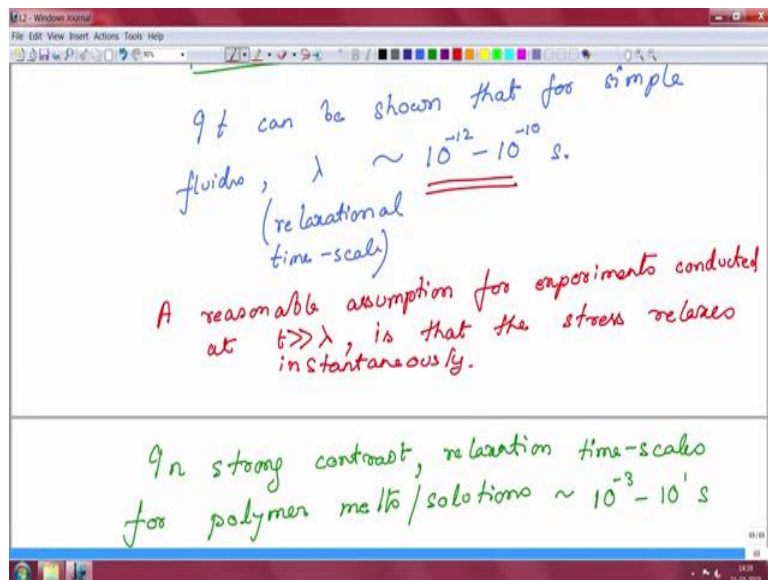 L2 - Windows Journal
File Edit View Insert Actions Tools Help
It can be shown that for simple
fluids, λ ~ 10^-12 - 10^-10 s.
(relaxational
time-scale)
A reasonable assumption for experiments conducted
at t>>λ, is that the stress relaxes
instantaneously.
In strong contrast, relaxation time-scales
for polymer melts/solutions ~ 10^-3 - 10^1 s
14:39